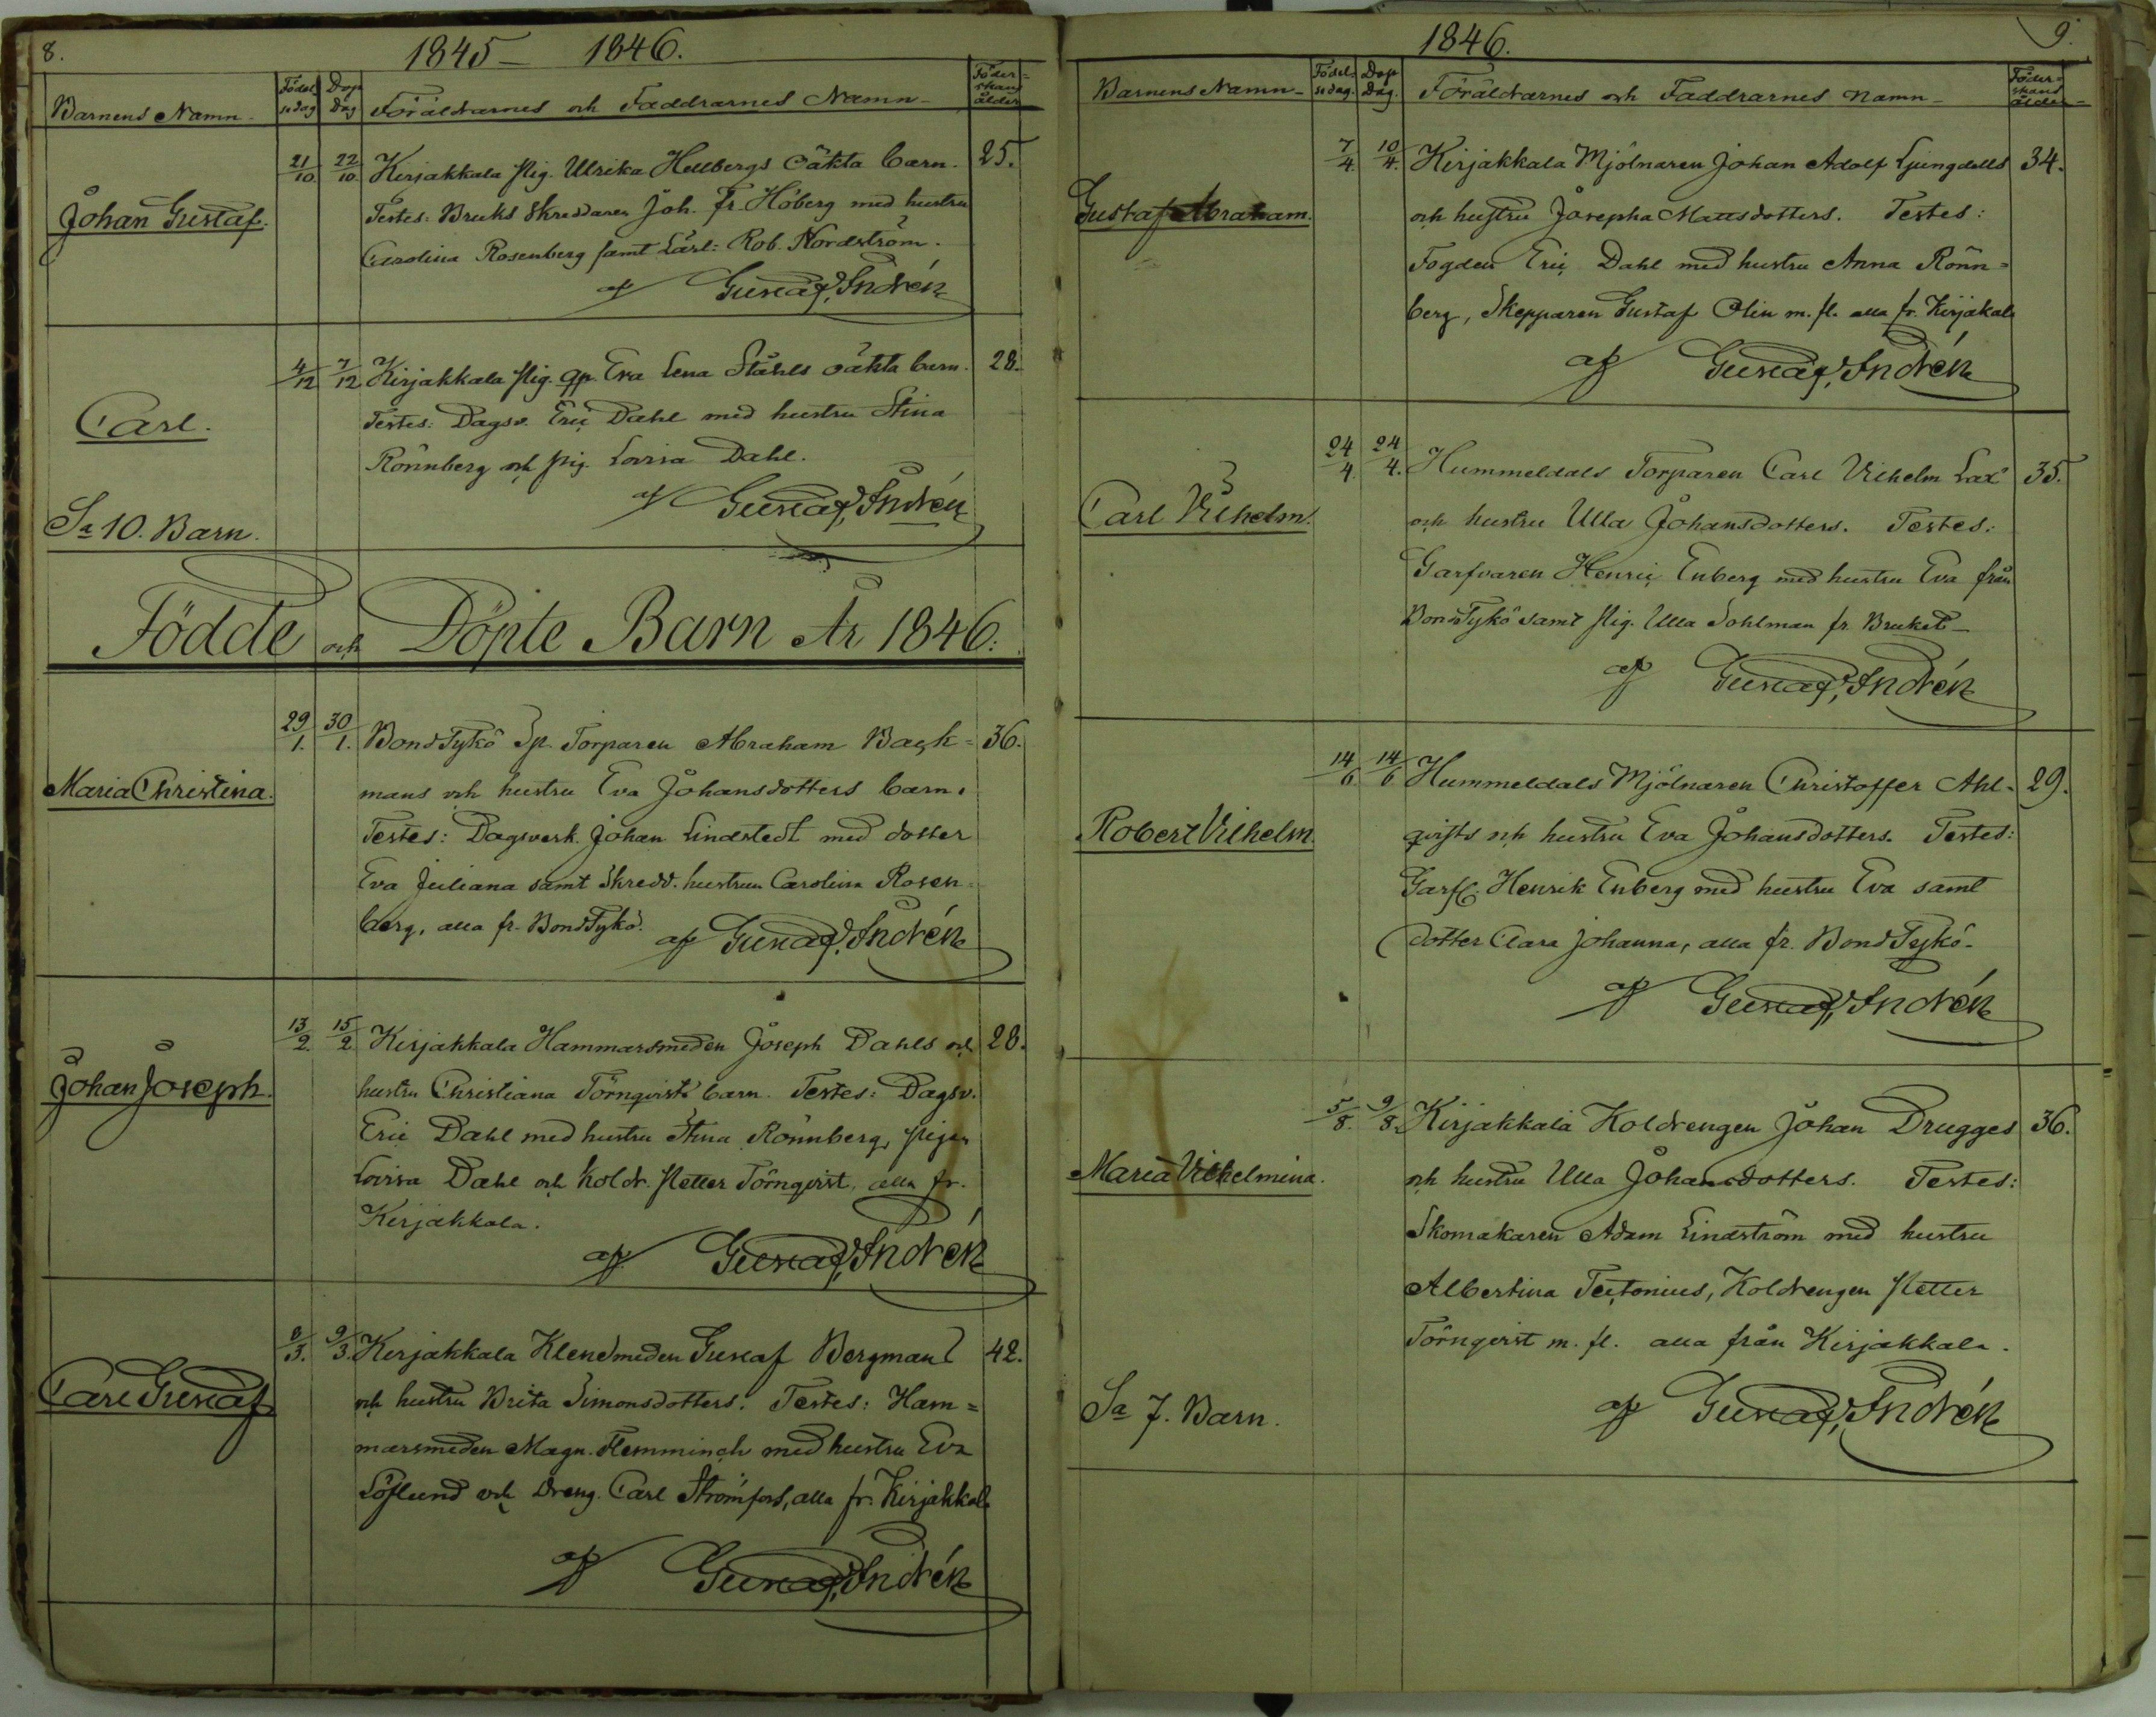 8.
1845 – 1846.
Barnens Namn – Födelsedag Dop Dag Föräldrarnes och Faddrarnes Namn – Föderskans ålder
21/10 22/10 Kirjakkala Pig. Ulrika Hellbergs oäkta barn. 25.
Johan Gustaf. Testes: Bruks Skreddaren Joh. Fr. Höberg med hustru
Carolina Rosenberg samt Lärl: Rob. Nordström.
af Gustaf Andrén
4/12 7/12 Kirjakkala Pig. Eva Lena Ståhls oäkta barn. 28.
Carl. Testes: Dagsv. Eric Dahl med hustru Stina
Rönnberg och Pig. Lovisa Dahl.
af Gustaf Andrén
Sa 10. Barn.
Födde och Döpte Barn År 1846.
29/1. 30/1. Bond Tykö Sp. Torparen Abraham Back= 36.
Maria Christina. mans och hustru Eva Johansdotters barn.
Testes: Dagsverk. Johan Lindstedt med dotter
Eva Juliana samt Skredd. hustrun Carolina Rosen-
berg, alla fr. Bond Tykö.
af Gustaf Andrén
13/2. 15/2 Kirjakkala Hammarsmeden Joseph Dahls och 28.
Johan Joseph. hustru Christiana Törnqvists barn. Testes: Dagsv.
Eric Dahl med hustru Stina Rönnberg, Pigan
Lovisa Dahl och Koldr. Petter Törnqvist, alla fr.
Kirjakkala.
af Gustaf Andrén
8/3. 9/3. Kirjakkala Klensmeden Gustaf Bergmans 42.
Carl Gustaf och hustru Brita Simonsdotters. Testes: Ham=
marsmeden Magn. Flemminch med hustru Eva
Löflund och Dreng. Carl Strömfors, alla fr. Kirjakkala
af Gustaf Andrén
9.
1846.
Barnens Namn – Födelsedag. Dop Dag. Föräldrarnes och Faddrarnes Namn – Föderskans ålder –
7/4. 10/4. Kirjakkala Mjölnaren Johan Adolf Ljungdells 34.
Gustaf Abraham. och hustru Josepha Mattsdotters. Testes:
Fogden Eric Dahl med hustru Anna Rönn=
berg, Skepparen Gustaf Olin m. fl. alla fr. Kirjakala
af Gustaf Andrén
24/4. 24/4. Hummeldals Torparen Carl Vilhelm Lax 35.
Carl Vilhelm. och hustru Ulla Johansdotters. Testes:
Garfvaren Henric Enberg med hustru Eva från
Bond Tykö samt Pig. Ulla Sohlman fr. Bruket –
af Gustaf Andrén
14/6. 14/6 Hummeldals Mjölnaren Christoffer Ahl- 29.
Robert Vilhelm. qvists och hustru Eva Johansdotters. Testes:
Garf. Henrik Enberg med hustru Eva samt
dotter Clara Johanna, alla fr. Bond Tykö.
af Gustaf Andrén
5/8. 9/8. Kirjakkala Koldrengen Johan Drugges 36.
Maria Vilhelmina. och hustru Ulla Johansdotters. Testes:
Skomakaren Adam Lindström med hustru
Albertina Tectonius, Koldrengen Petter
Törnqvist m. fl. alla från Kirjakkala.
af Gustaf Andrén
Sa 7. Barn.